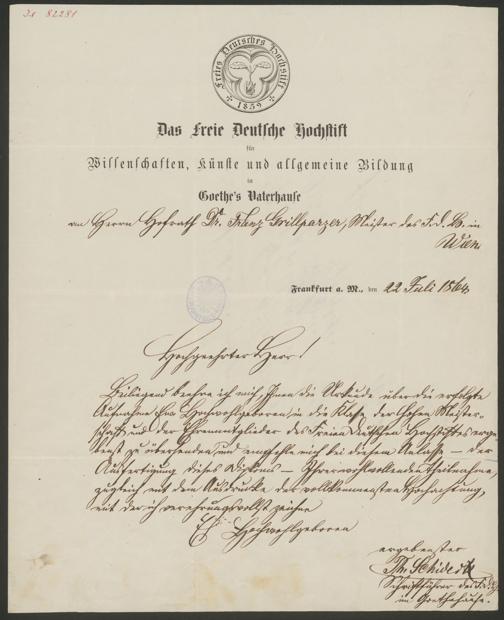 In 82281
Freies Deutsches Hochstift
1859
Das Freie Deutsche Hochstift
für
Wissenschaften, Künste und allgemeine Bildung
in
Goethe's Vaterhause
an Herrn Hofrath Dr. Franz Grillparzer, Meister des F. d. H. in
Wien
Frankfurt a. M., den 22 Juli 1864
Hochgeehrter Herr!
Beiliegend beehre ich mich, Ihnen die Urkunde über die erfolgte
Aufnahme Ew Hochwohlgeboren in die Klasse der hohen Meister-
schaft und der Ehrenmitglieder des Freien Deutschen Hochstiftes erge-
benst zu übersenden, und empfehle mich bei diesem Anlasse – der
Ausfertigung dieses Diploms – Ihrer wohlwollenden Theilnahme,
zugleich mit dem Ausdrucke der vollkommensten Hochachtung,
mit der ich verehrungsvollst zeichne
Ew. Hochwohlgeboren
ergebenster
Th.
Schriftführer des F. d. H.
im Goethehause.